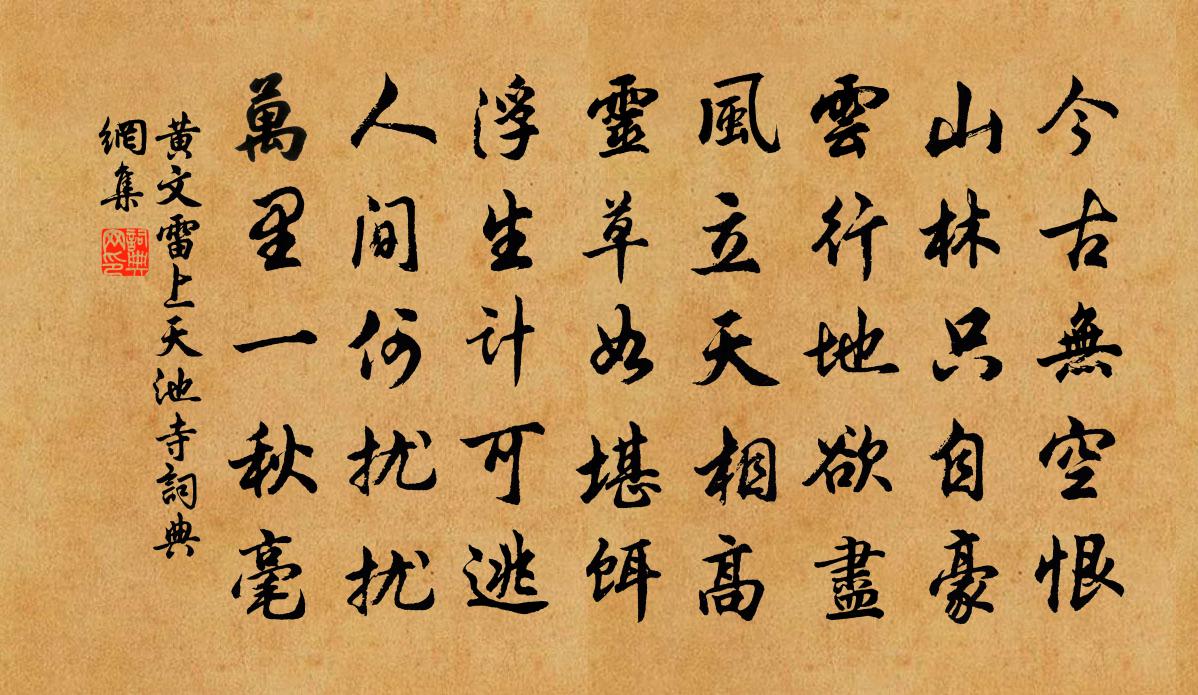 今古無空恨
山林只自豪
雲行地欲盡
風立天相高
靈草如堪餌
浮生计可逃
人间何扰扰
萬里一秋毫
黄文雷上天池寺詞典
網集
詞典
网印